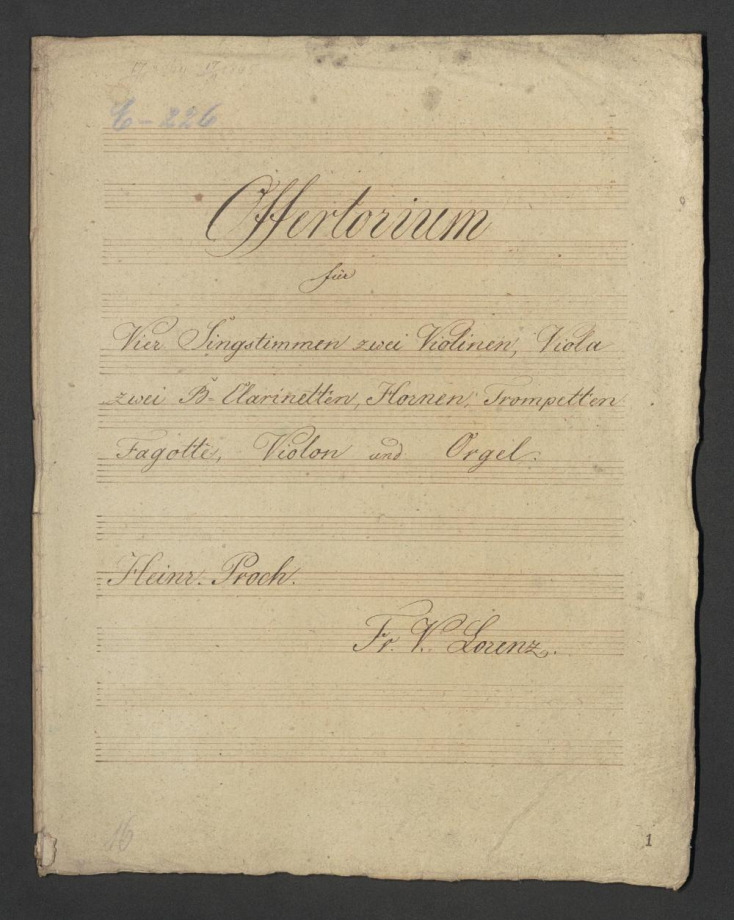 C-226
Offertorium
für
Vier Singstimmen zwei Violinen, Viola
zwei B-Clarinetten, Hornen, Trompetten
Fagotte, Violon und Orgel.
Heinr. Proch.
Fr. V. Lorenz.
16
1